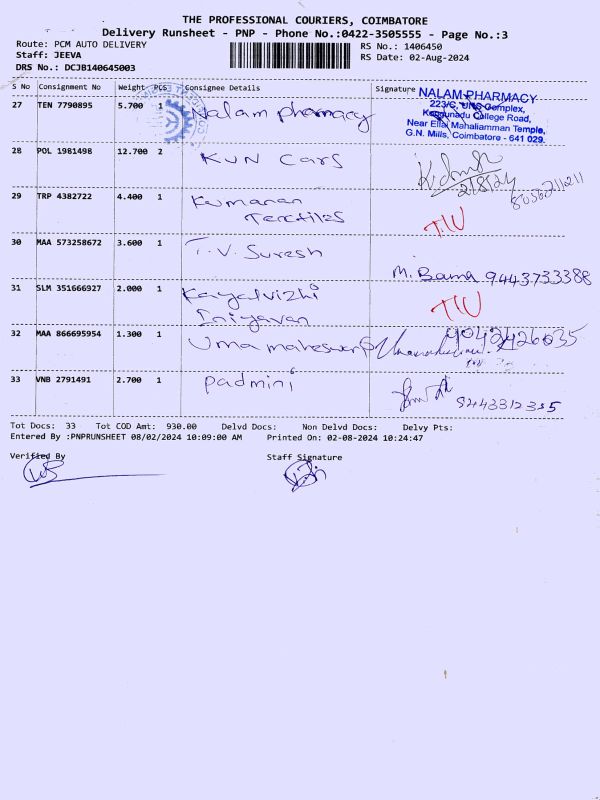 THE PROFESSIONAL COURIERS, COIMBATORE
Delivery Runsheet - PNP - Phone No.:0422-3505555 - Page No.:3
Route: PCM AUTO DELIVERY
Staff: JEEVA
DRS No.: DCJB140645003
RS No.: 1406450
RS Date: 02-Aug-2024
S No Consignment No Weight PCS Consignee Details Signature
27 TEN 7790895 5.700 1 Nalam pharmacy
NALAM PHARMACY
223/C, UNS Complex,
Kongunadu College Road,
Near Ellai Mahaliamman Temple,
G.N. Mills, Coimbatore - 641 029.
28 POL 1981498 12.700 2 KUN Cars
2/8/24
29 TRP 4382722 4.400 1 Kumanan
Textiles
30 MAA 573258672 3.600 1 T.V. Suresh M. Bama 9443733388
31 SLM 351666927 2.000 1 Kayalvizhi
Iniyavan
32 MAA 866695954 1.300 1 Uma maheswari 9042426035
33 VNB 2791491 2.700 1 padmini 9443312355
Tot Docs: 33 Tot COD Amt: 930.00 Delvd Docs: Non Delvd Docs: Delvy Pts:
Entered By :PNPRUNSHEET 08/02/2024 10:09:00 AM Printed On: 02-08-2024 10:24:47
Verified By Staff Signature